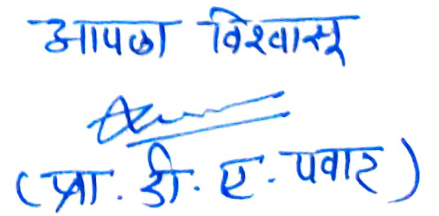 आपला विश्वासू
(प्रा. डी. ए. पवार)